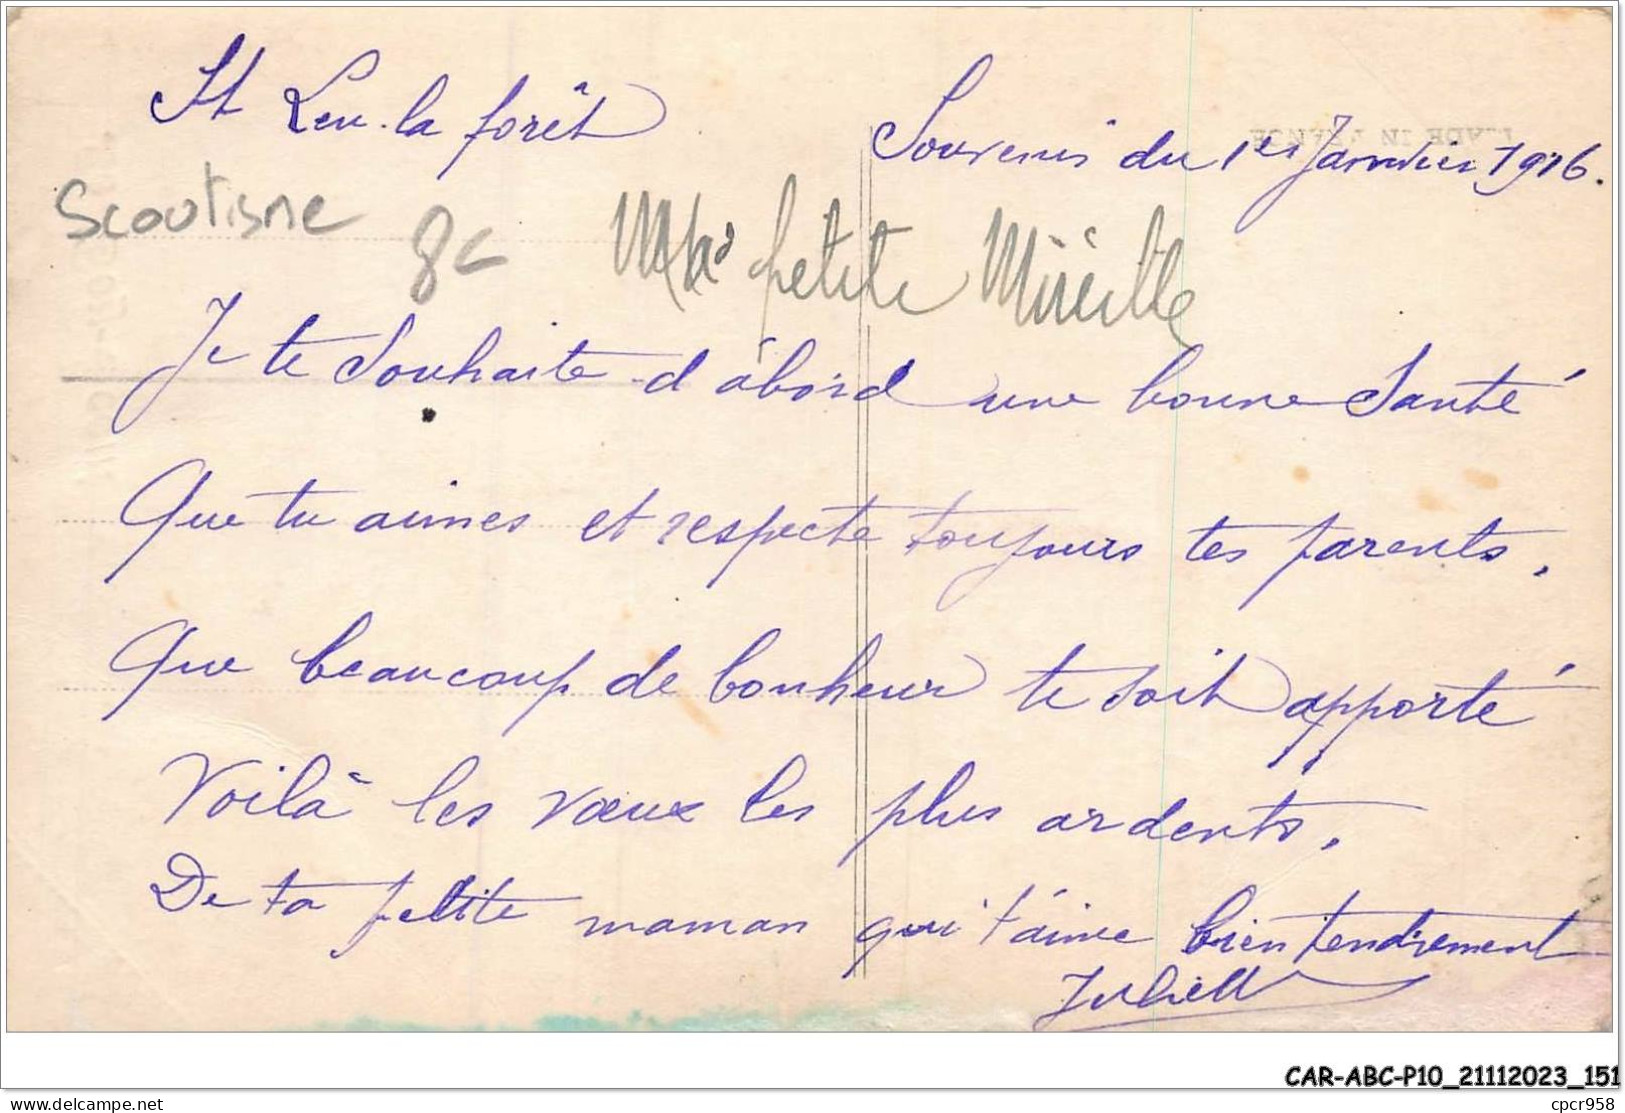 St Leu-la forêt
Souvenir du 1er Janvier 1916.
MADE IN FRANCE
Scoutisne
8c
petite Mireille
Je te Souhaite d'abord une bonne Santé
Que tu aimes et respecte toujours tes parents.
Que beaucoup de bonheur te soit apporté
Voilà les vœux les plus ardents.
De ta petite maman qui t'aime bien tendrement
Juliett
CAR-ABC-P10_21112023_151
cpcr958